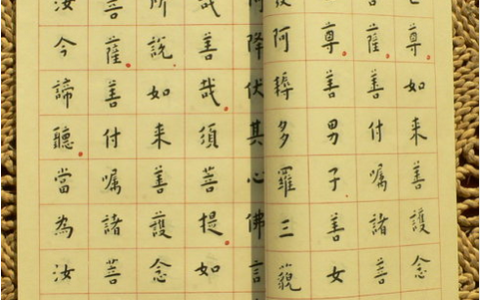 尊如來善護念
菩薩善付囑諸菩
尊善男子善女
發阿耨多羅三藐
何降伏其心佛言
哉善哉須菩提如
所說如來善護念
菩薩善付囑諸菩
汝今諦聽當為汝